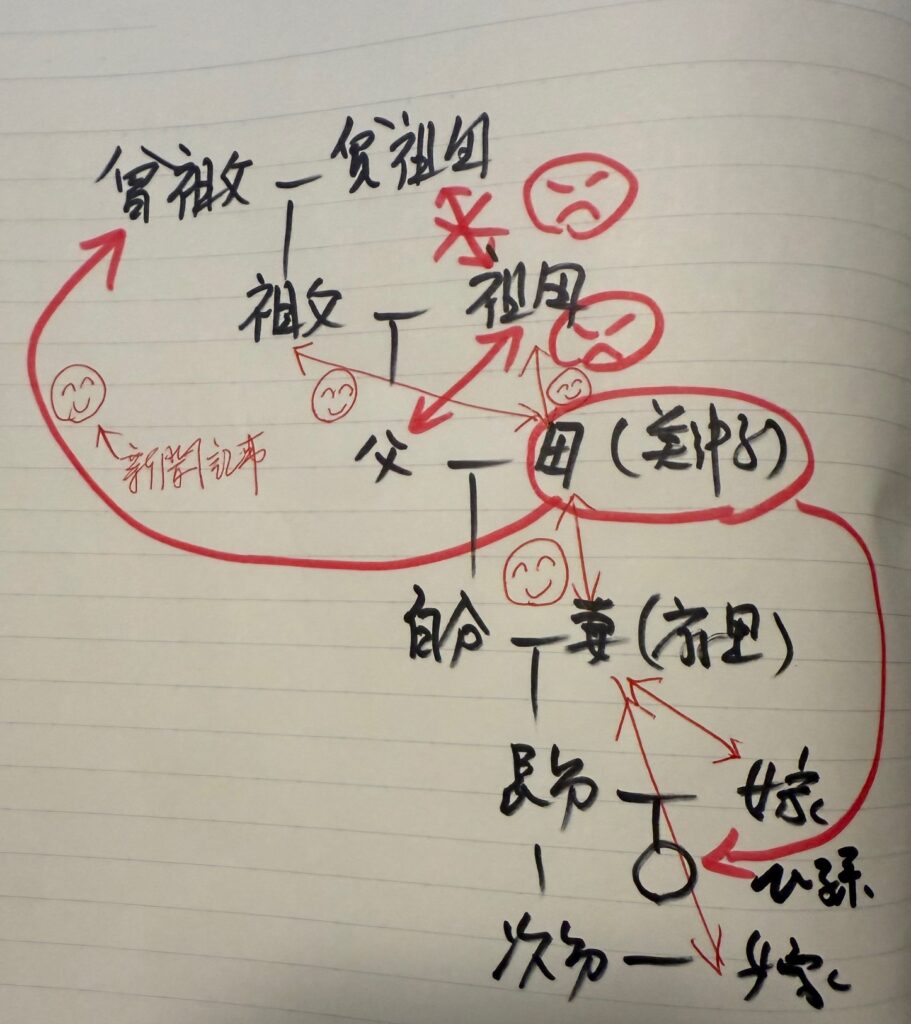 曾祖父 曾祖母
祖父 祖母
新聞記事
父 母(美沖子)
自分 妻
長男 嫁
ひ孫
次男 嫁